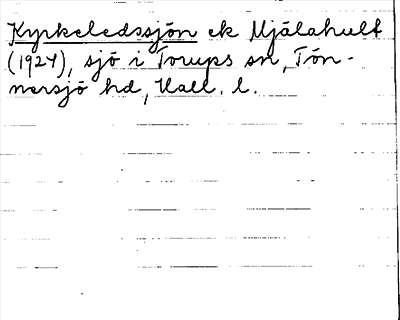 Kyrkeledssjön ek Mjälahult
(1924), sjö i Torups sn, Tön-
nersjö hd, Hall. l.